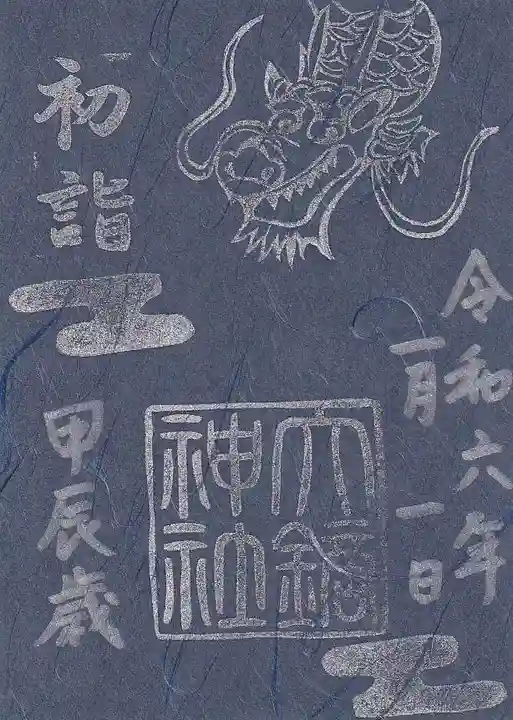 令和六年
一月一日
大鏑
神社
初詣
甲辰歳